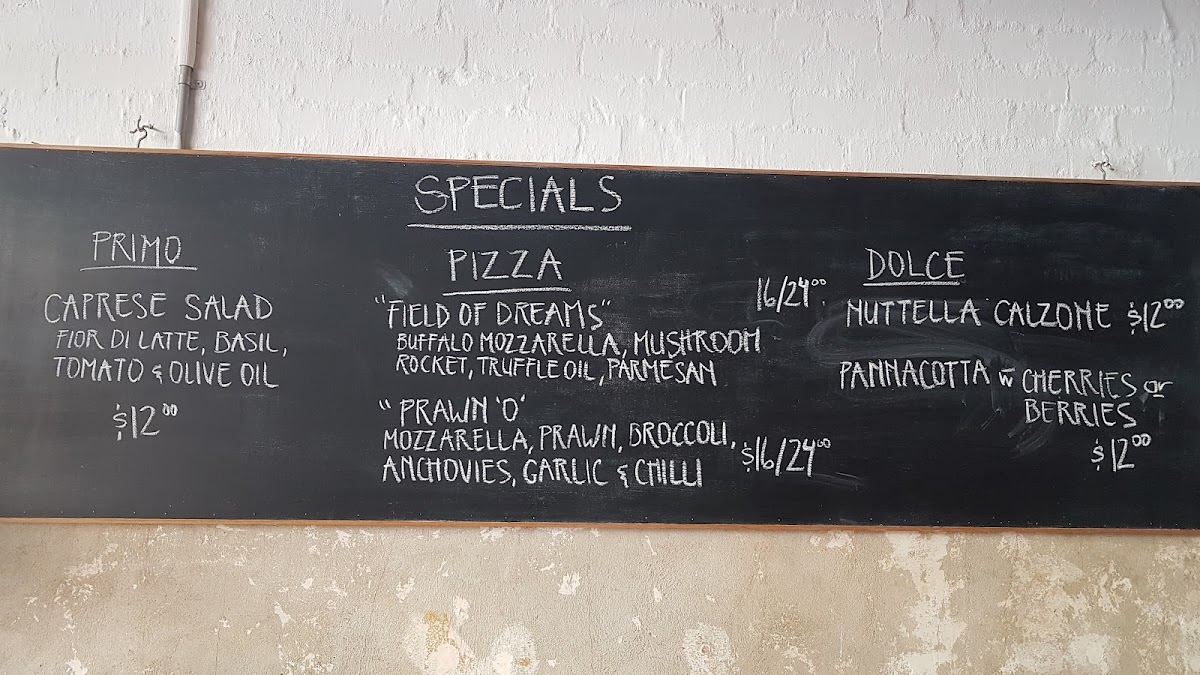 SPECIALS
PRIMO
CAPRESE SALAD
FIOR DI LATTE, BASIL,
TOMATO & OLIVE OIL
$12.00
PIZZA
"FIELD OF DREAMS" 16/24.00
BUFFALO MOZZARELLA, MUSHROOM
ROCKET, TRUFFLE OIL, PARMESAN
"PRAWN 'O'
MOZZARELLA, PRAWN, BROCCOLI,
ANCHOVIES, GARLIC & CHILLI $16/24.00
DOLCE
NUTTELLA CALZONE $12.00
PANNACOTTA w CHERRIES or
BERRIES
$12.00